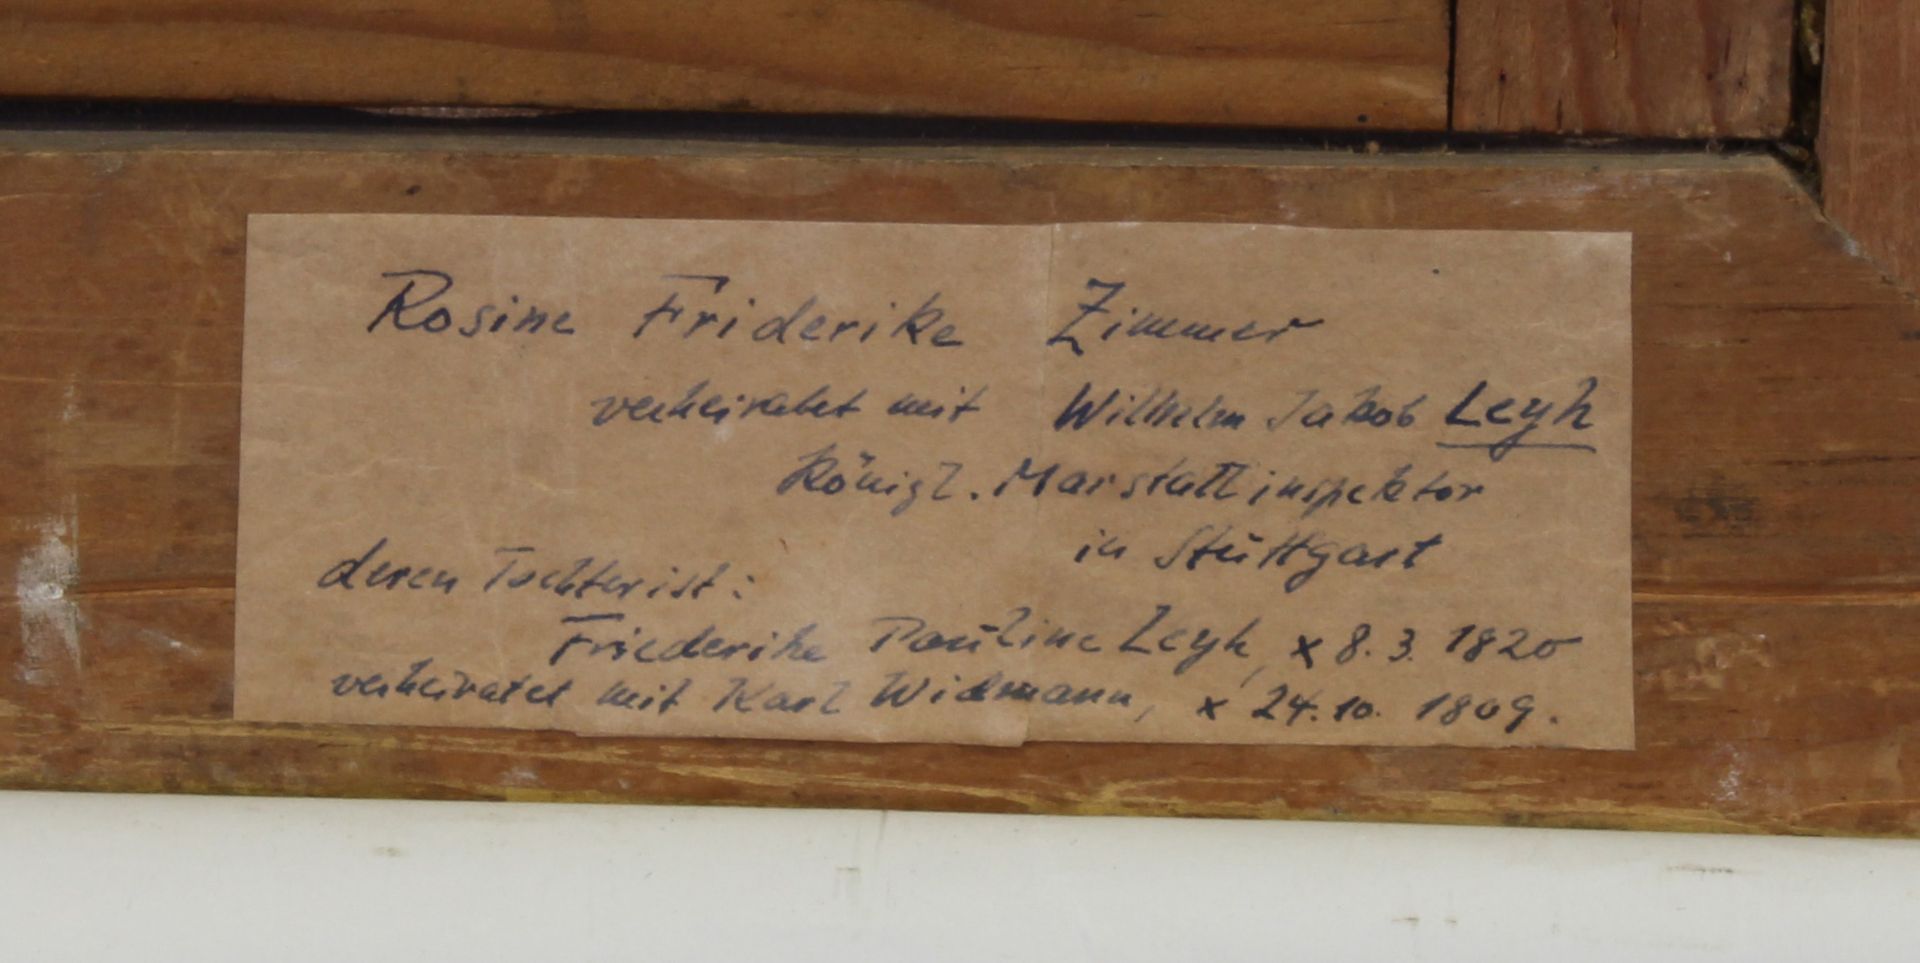 Rosine Friderike Zimmer
verheiratet mit Wilhelm Jakob Leyh
Königl. Marstallinspektor
in Stuttgart
deren Tochter ist:
Friederike Pauline Leyh, x 8. 3. 1820
verheiratet mit Karl Widmann, x 24. 10. 1809.